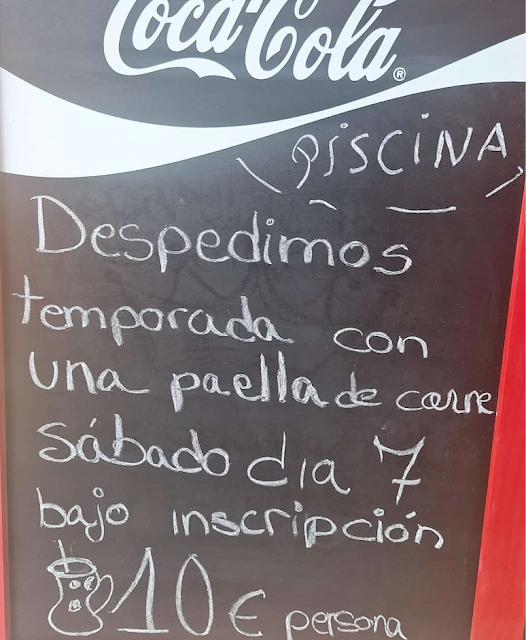 Coca-Cola®
PISCINA
Despedimos
temporada con
una paella de carne
sábado dia 7
bajo inscripción
10 € persona